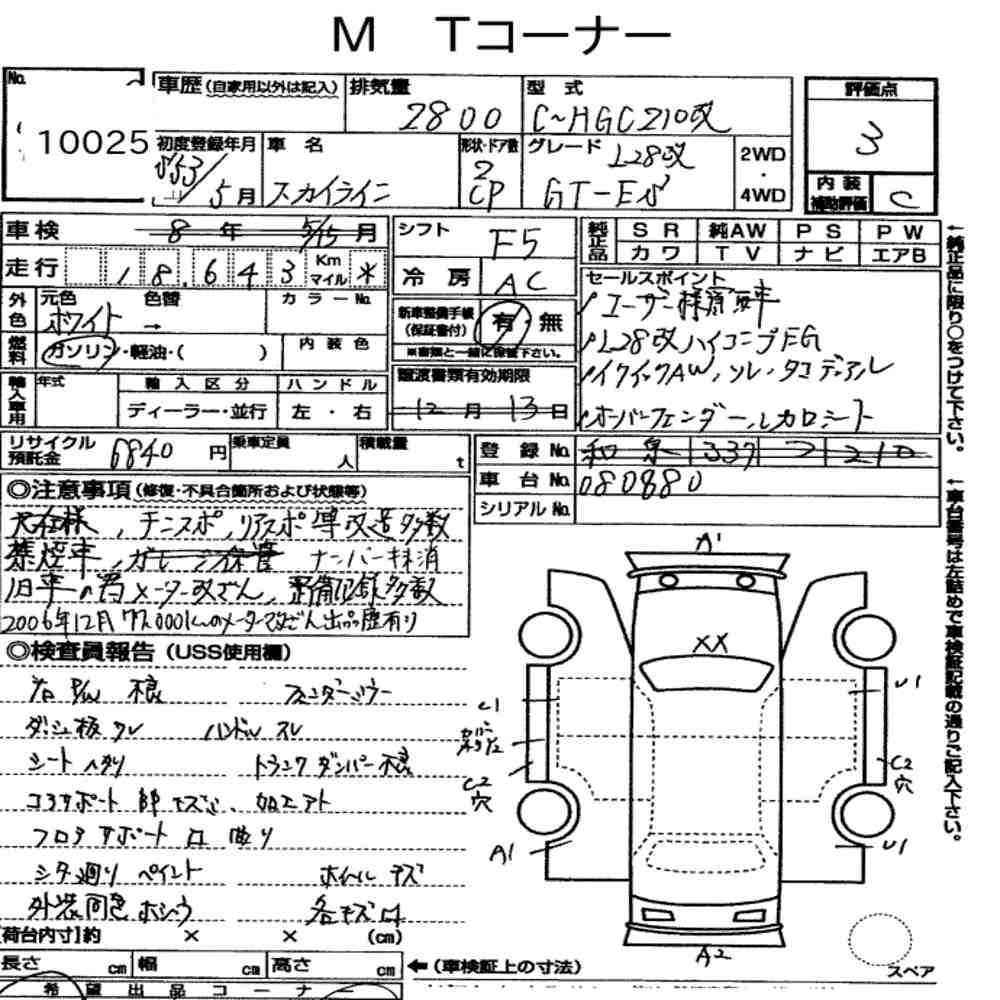 M Tコーナー
No. 10025
車歴(自家用以外は記入) 排気量 2800 型式 C-HGC210改
評価点 3
初度登録年月 S53/5月 車名 スカイライン 形状・ドア数 2 CP グレード L28改 GT-E 2WD・4WD
内装補助評価 C
車検 8年 5/15月
シフト F5
純正品 SR 純AW PS PW
カワ TV ナビ エアB
走行 18,643 Km マイル *
冷房 AC
セールスポイント
外色 元色 ホワイト 色替 → カラーNo.
新車整備手帳(保証書付) 有・無
※書類と一緒に保管下さい。
ユーザー様 車
L28改ハイコンプEG
燃料 ガソリン・軽油・( ) 内装色
譲渡書類有効期限
12月13日
AW, ソレ・タコデュアル
オーバーフェンダー, レカロシート
輸入車用 年式 輸入区分 ハンドル
ディーラー・並行 左・右
リサイクル預託金 6840円 乗車定員 人 積載量 t
登録No. 和泉 337 フ 210
車台No. 080880
シリアルNo.
←純正品に限り○をつけて下さい。
←車台番号は左詰めで車検証記載の通りご記入下さい。
◎注意事項(修復・不具合箇所および状態等)
, チンスポ, リアスポ等改造多数
禁煙車, ガレージ保管 ナンバー抹消
旧車の為メーター改ざん, 整備記録多数
2006年12月 77,000kmのメーター改ざん出品歴有り
◎検査員報告(USS使用欄)
右P/W 不良 フェンダーミラー
ダッシュ板ワレ ハンドルスレ
シート ヘタリ トランクダンパー不良
コアサポート 加工アト
フロアサポート 凹 曲り
シタ廻り ペイント ホイールキズ
外装同色ホシュウ 各キズ凹
A1
XX
U1
C2 穴
U1
C1
C2 穴
A1
A2
スペア
[荷台内寸]約 × × (cm)
長さ cm 幅 cm 高さ cm ←(車検証上の寸法)
希望出品コーナー